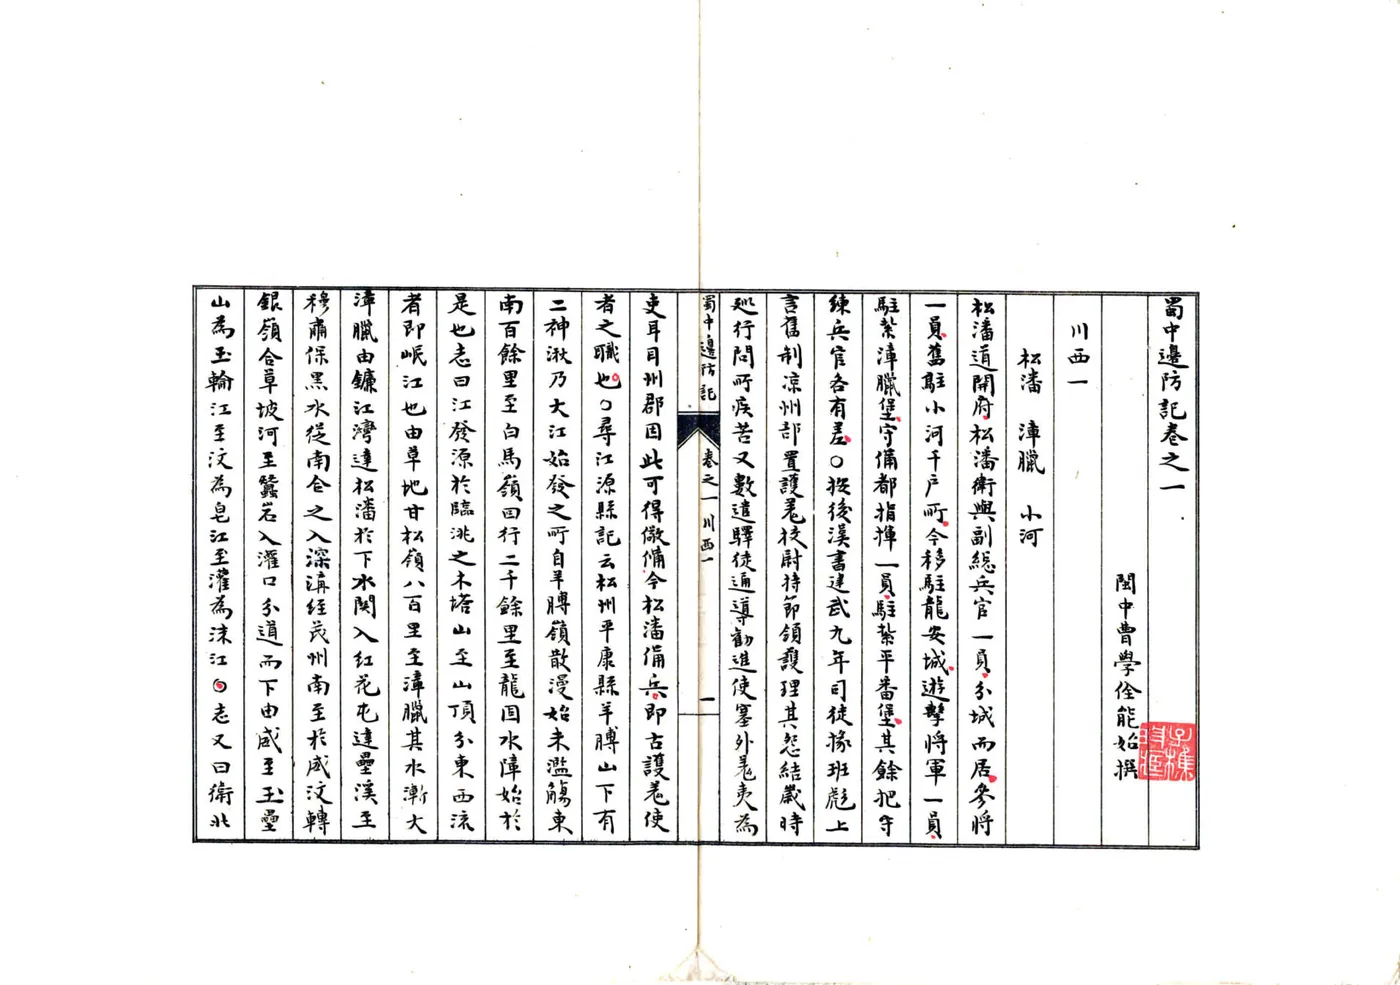 蜀中邊防記卷之一
閩中曹學佺能始撰
川西一
松潘 漳臘 小河
松潘道開府松潘衛與副總兵官一員分城而居參將
一員舊駐小河千戶所今移駐龍安城遊擊將軍一員
駐紮漳臘堡守備都指揮一員駐紮平番堡其餘把守
練兵官各有差○按後漢書建武九年司徒掾班彪上
言舊制凉州部置護羌校尉持節領護理其怨結歲時
廵行問所疾苦又數遣驛徒通導勸進使塞外羌夷為
蜀中邊防記 卷之一 川西一 一
吏耳目州郡因此可得儆備今松潘備兵即古護羌使
者之職也○尋江源縣記云松州平康縣羊膊山下有
二神湫乃大江始發之所自羊膊嶺散漫始未濫觴東
南百餘里至白馬嶺回行二千餘里至龍固水障始於
是也志曰江發源於臨洮之木塔山至山頂分東西流
者即岷江也由草地甘松嶺八百里至漳臘其水漸大
漳臘由鐮江灣達松潘於下水関入紅花屯達疊溪至
穆肅保黑水從南合之入深溝經茂州南至於威汶轉
銀嶺合草坡河至蠶岩入灌口分道而下由威至玉壘
山為玉輪江至汶為皂江至灌為沫江○志又曰衛北